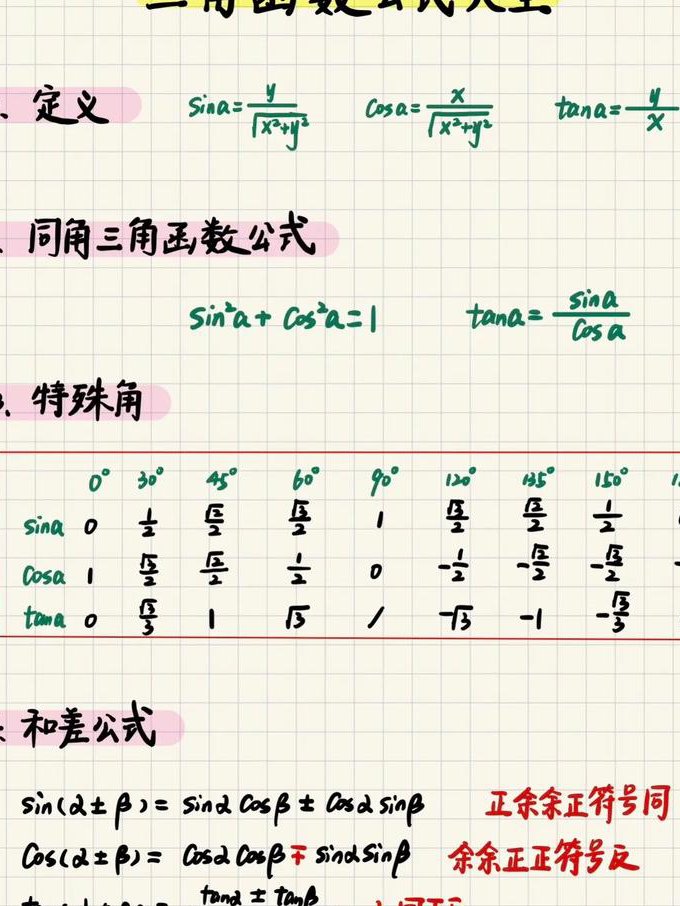 三角函数公式大全
、定义 sina=y/√(x²+y²) cosa=x/√(x²+y²) tana=y/x
、同角三角函数公式
sin²a+cos²a=1 tana=sina/cosa
、特殊角
0° 30° 45° 60° 90° 120° 135° 150°
sina 0 1/2 √2/2 √3/2 1 √3/2 √2/2 1/2
cosa 1 √3/2 √2/2 1/2 0 -1/2 -√2/2 -√3/2
tana 0 √3/3 1 √3 / -√3 -1 -√3/3
和差公式
sin(α±β)= sinαcosβ±cosαsinβ 正余余正符号同
cos(α±β)= cosαcosβ∓sinαsinβ 余余正正符号反
tanα±tanβ